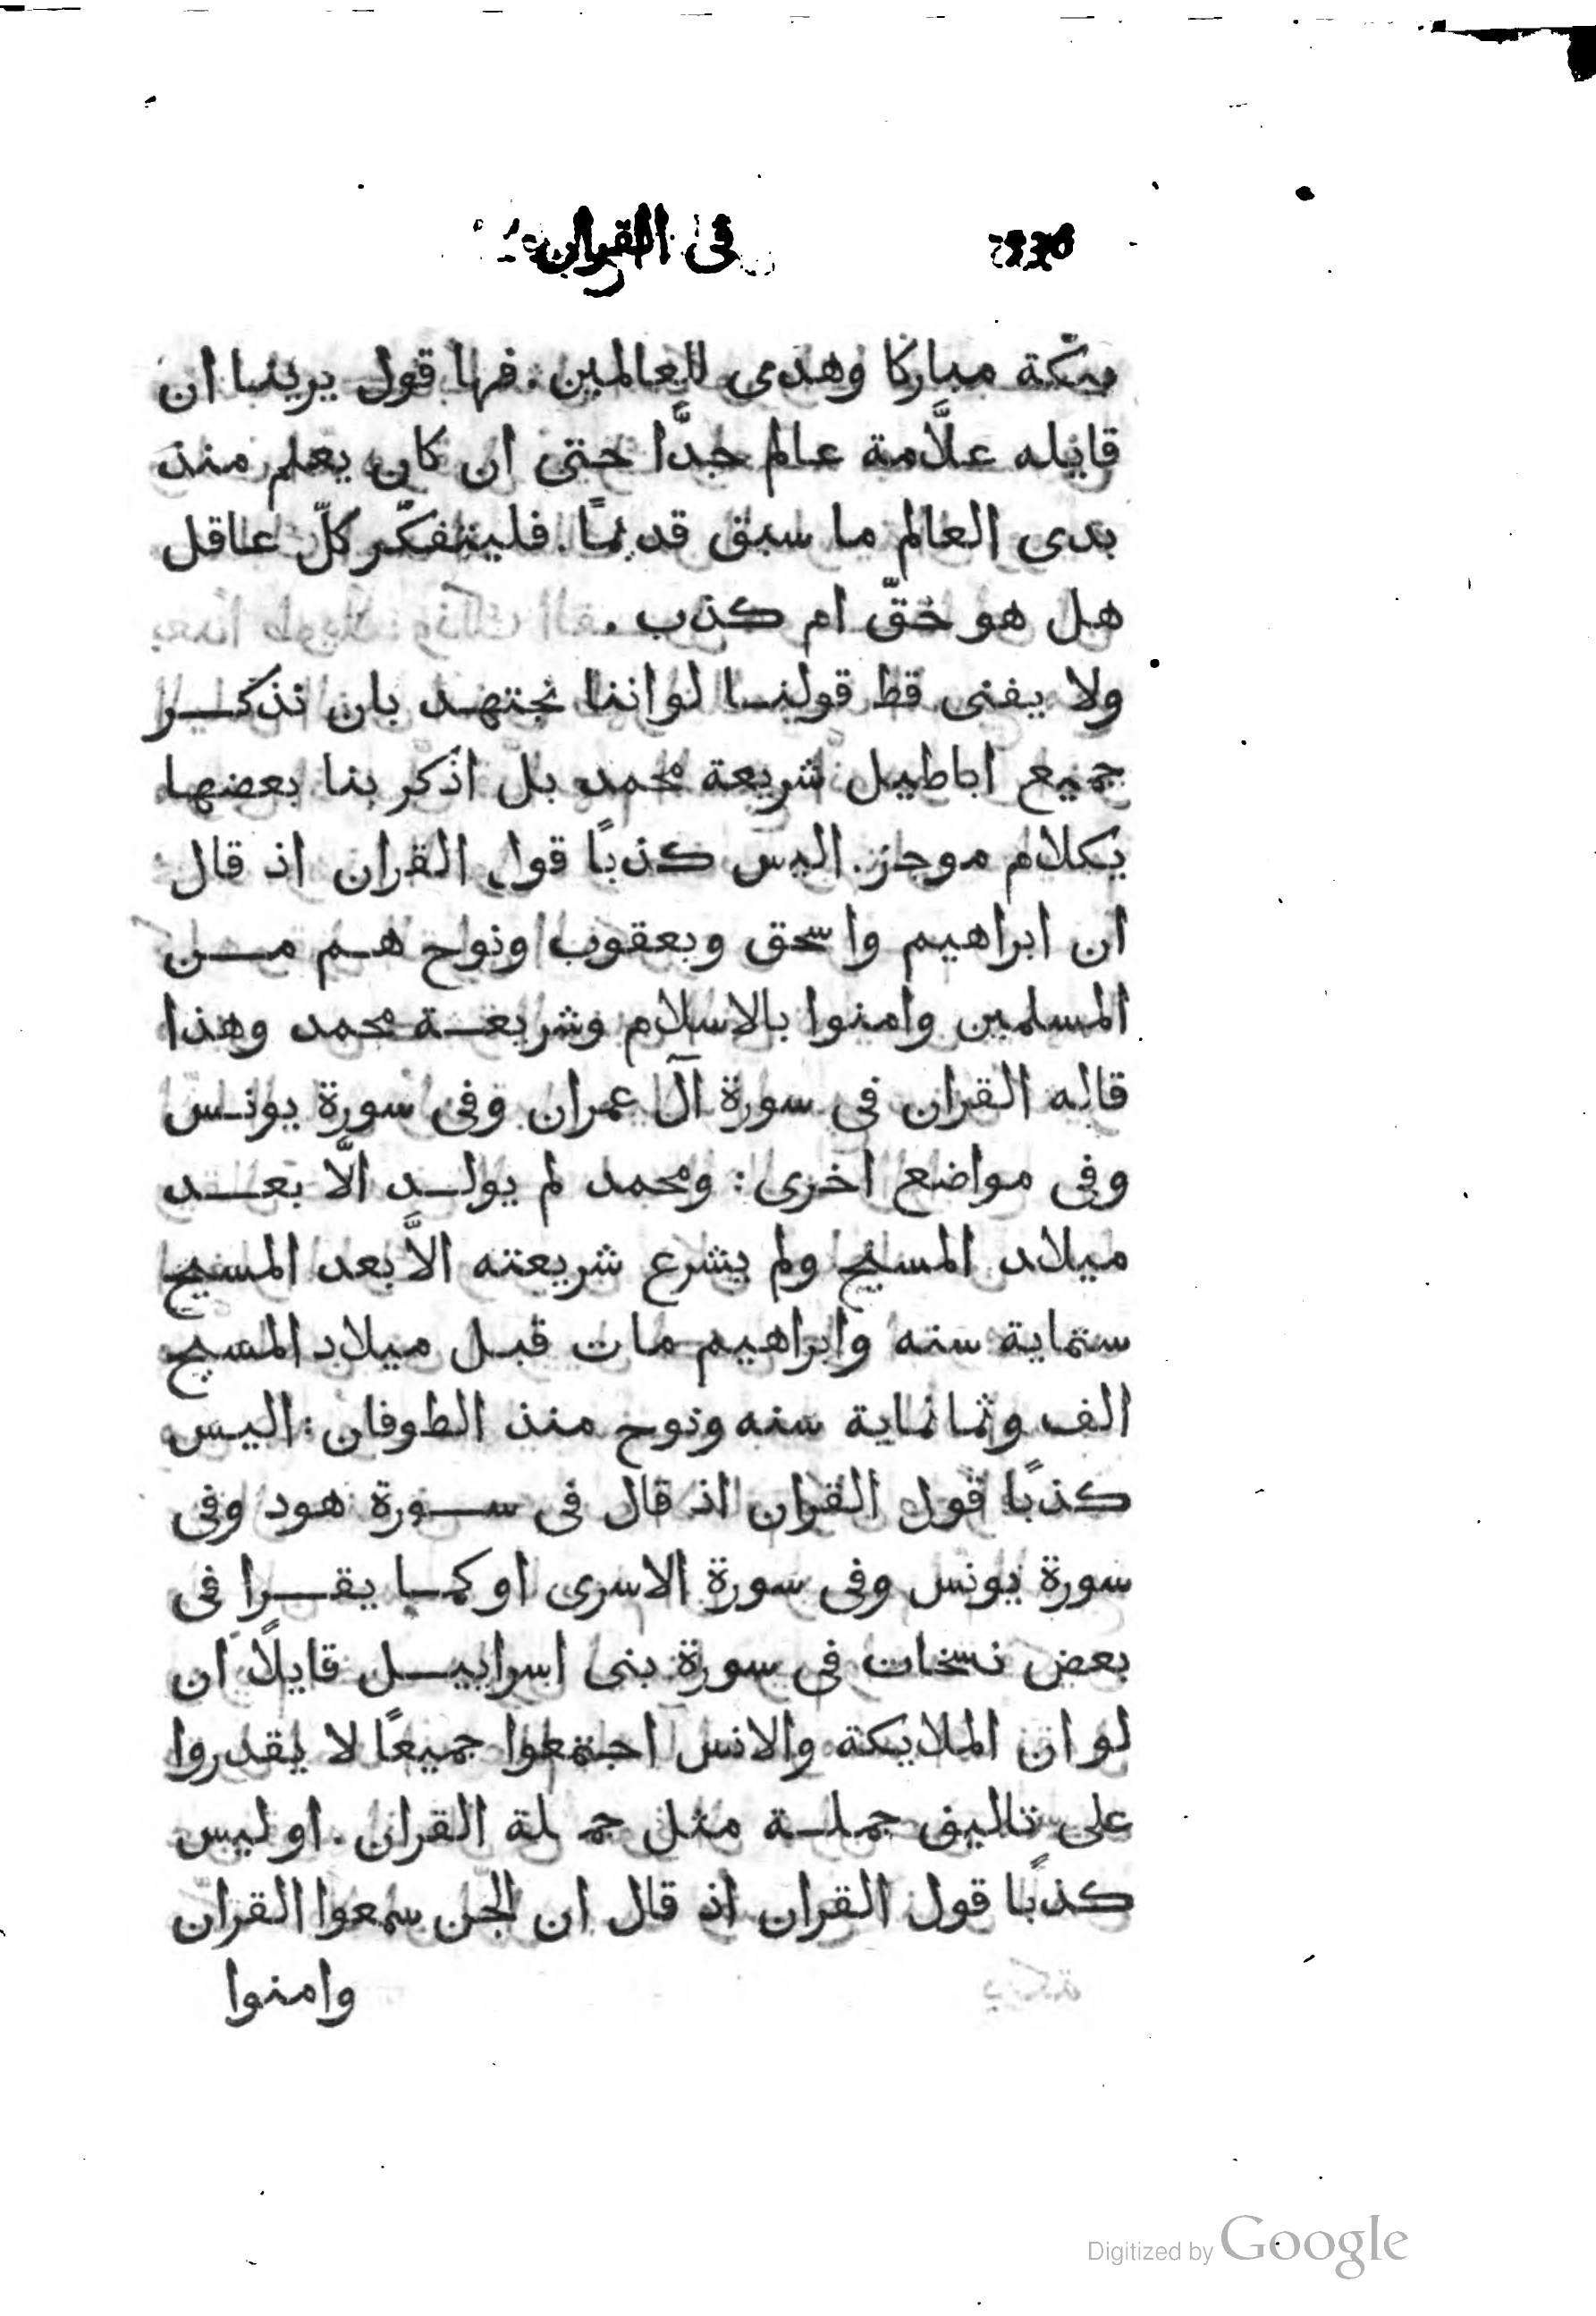 في القران
ببكّة مباركا وهدى للعالمين. فها قول يرينا ان
قايله علّامة عالم جدًّا حتى ان كان يعلم منذ
بدى العالم ما سبق قديمًا. فليتفكّر كلّ عاقل
هل هو حقّ ام كذب.
ولا يفنى قط قولنا لو اننا نجتهد بان نذكر
جميع اباطيل شريعة محمد بل اذكّر بنا بعضها
بكلام موجز. اليس كذبًا قول القران اذ قال
ان ابراهيم واسحق ويعقوب ونوح هم من
المسلمين وامنوا بالاسلام وشريعة محمد وهذا
قاله القران في سورة آل عمران وفى سورة يونس
وفى مواضع اخرى: ومحمد لم يولد الّا بعد
ميلاد المسيح ولم يشرع شريعته الّا بعد المسيح
ستماية سنه وابراهيم مات قبل ميلاد المسيح
الف وثمانماية سنه ونوح منذ الطوفان: اليس
كذبًا قول القران اذ قال فى سورة هود وفى
سورة يونس وفى سورة الاسرى او كما يقرا فى
بعض نسخات فى سورة بنى اسراييل قايلًا ان
لو ان الملايكة والانس اجتمعوا جميعًا لا يقدروا
على تاليف جملة مثل جملة القران. او ليس
كذبًا قول القران اذ قال ان الجّن سمعوا القران
وامنوا
Digitized by Google